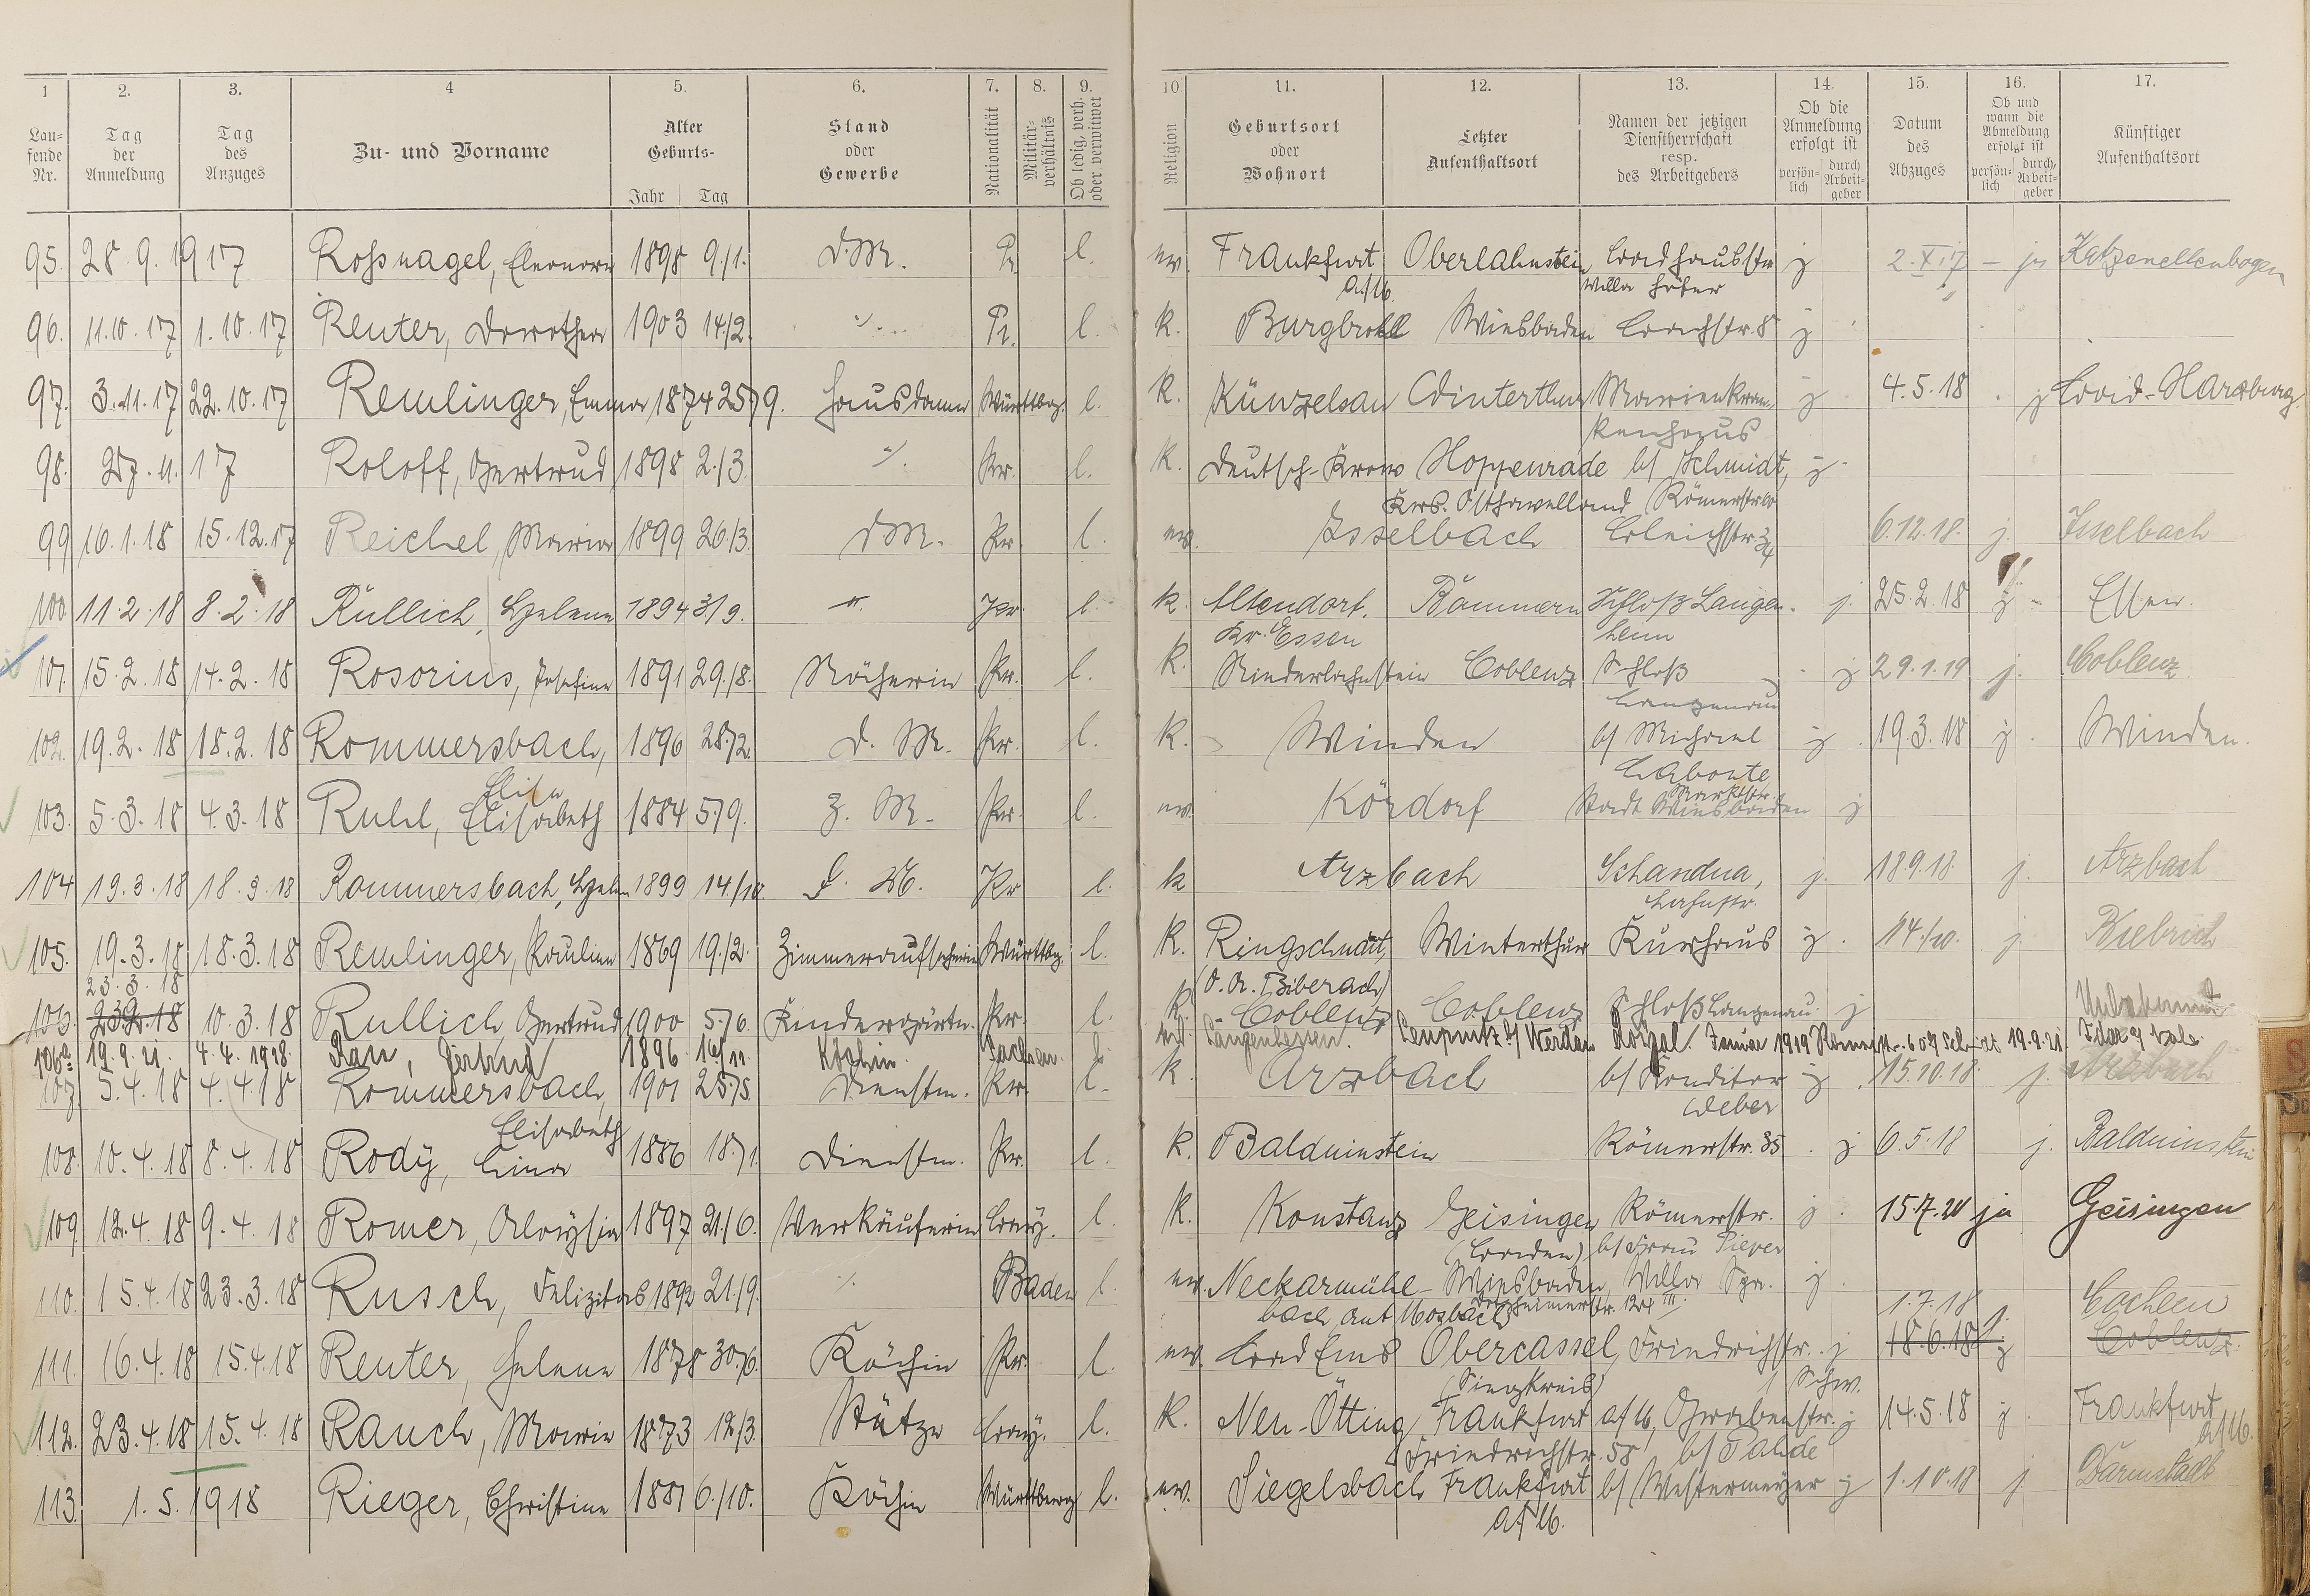 1 2. 3. 4 5. 6. 7. 8. 9. 10 11. 12. 13. 14. 15. 16. 17.
Lau-fende Nr. Tag der Anmeldung Tag des Anzuges Zu- und Vorname Alter Geburts- Jahr Tag Stand oder Gewerbe Nationalität Militär-verhältnis Ob ledig, verh. oder verwitwet Religion Geburtsort oder Wohnort Letzter Aufenthaltsort Namen der jetzigen Dienstherrschaft resp. des Arbeitgebers Ob die Anmeldung erfolgt ist persön-lich durch Arbeit-geber Datum des Abzuges Ob und wann die Abmeldung erfolgt ist persön-lich durch Arbeit-geber Künftiger Aufenthaltsort
95. 28.9.1917 Roßnagel, Eleonore 1898 9./1. D.M. Pr. l. ev. Frankfurt Oberlahnstein Badhausstr j 2.XI.17 - ja Katzenellenbogen
a/M. Villa
96. 11.10.17 1.10.17 Reuter, Dorothea 1903 14/2. Pr. l. k. Burgbrohl Wiesbaden Bachstr. 8 j
97. 3.11.17 22.10.17 Remlinger, Emma 1874 25./9. Hausdame Württbg. l. k. Künzelsau Winterthur Marienkran- j 4.5.18 j Bad-Harzburg
kenhaus
98. 27.11.17 Roloff, Gertrud 1898 2./3. Pr. l. k. Deutsch-Krone Hoppenrade b/ Schmidt, j
Krs. Osthavelland Römerstr.
99 16.1.18 15.12.17 Reichel, Maria 1899 26./3. DM. Pr. l. ev. Isselbach Bleichstr. 34 6.12.18. j. Isselbach
100. 11.2.18 8.2.18 Rüllich, Helene 1894 3/9. Pr. l. k. Altendorf, Bommern Schloß Langen- j. 25.2.18 j Essen.
Kr. Essen
101. 15.2.18 14.2.18 Rosorius, Josefine 1891 29./8. Näherin Pr. l. k. Niederlahnstein Coblenz Schloß j 29.1.19 j. Coblenz
Langenau
102. 19.2.18 18.2.18 Rommersbach, 1896 28./2. D. M. Pr. l. k. Winden b/ Michael j 19.3.18 j Winden.
Elise Labonte
Marktstr.
103. 5.3.18 4.3.18 Ruhl, Elisabeth 1884 5./9. Z. M. Pr. l. ev. Kördorf Stadt Wiesbaden j
104 19.3.18 18.3.18 Rommersbach, Helene 1899 14/10. D. M. Pr l. k Arzbach Schandua, j. 18.9.18. j. Arzbach
Lahnstr.
105. 19.3.18 18.3.18 Remlinger, Pauline 1869 19./2. Zimmeraufseherin Württbg. l. k. Ringschnait, Winterthur Kurhaus j 14/20. j. Biebrich
23.3.18 (O.A. Biberach)
106. 23.2.18 10.3.18 Rullich, Gertrud 1900 5./6. Kindergärtn. Pr. l. k. Coblenz Coblenz Schloß Langenau. j Unbekannt
106a 19.9.21. 4.4.1918. Rau, Gertrud 1896 16/11. Köchin. Sachsen. l. Langenhessen. b/ Werdau Januar 1919 19.9.21.
107. 5.4.18 4.4.18 Rommersbach, 1901 25./5. Dienstm. Pr. l. k. Arzbach b/ Konditor j 15.10.18. j. Arzbach
Elisabeth Weber
108. 10.4.18 8.4.18 Rody, Lina 1886 18./1. Dienstm. Pr. l. k. Balduinstein Römerstr. 35 j 6.5.18 j. Balduinstein
109. 12.4.18 9.4.18 Romer, Aloysia 1897 21./6. Verkäuferin Bay. l. k. Konstanz Geisingen Römerstr. j 15.7.20 ja Geisingen
(Baden) b/ Frau Pieper
110. 15.4.18 23.3.18 Rusch, Felizitas 1892 21./9. Baden l. ev. Neckarmühl- Wiesbaden, Villa Spa. j
bach, Amt Mosbach Dotzheimerstr. 124 III. 1.7.18 j. Cochem
111. 16.4.18 15.4.18 Reuter, Helene 1878 30./6. Köchin Pr. l. ev. Bad Ems Obercassel, Friedrichstr. j 18.6.18 j Coblenz
(Siegkreis)
112. 23.4.18 15.4.18 Rauch, Maria 1873 12/3. Stütze Bay. l. k. Neu-Ötting Frankfurt a/M, Grabenstr. j 14.5.18 j Frankfurt
Friedrichstr. 58 b/ Fahde a/M.
113. 1.5.1918 Rieger, Christine 1881 6./10. Köchin Württberg l. ev. Siegelsbach Frankfurt b/ Westermeyer j 1.10.18 j. Darmstadt
a/M.